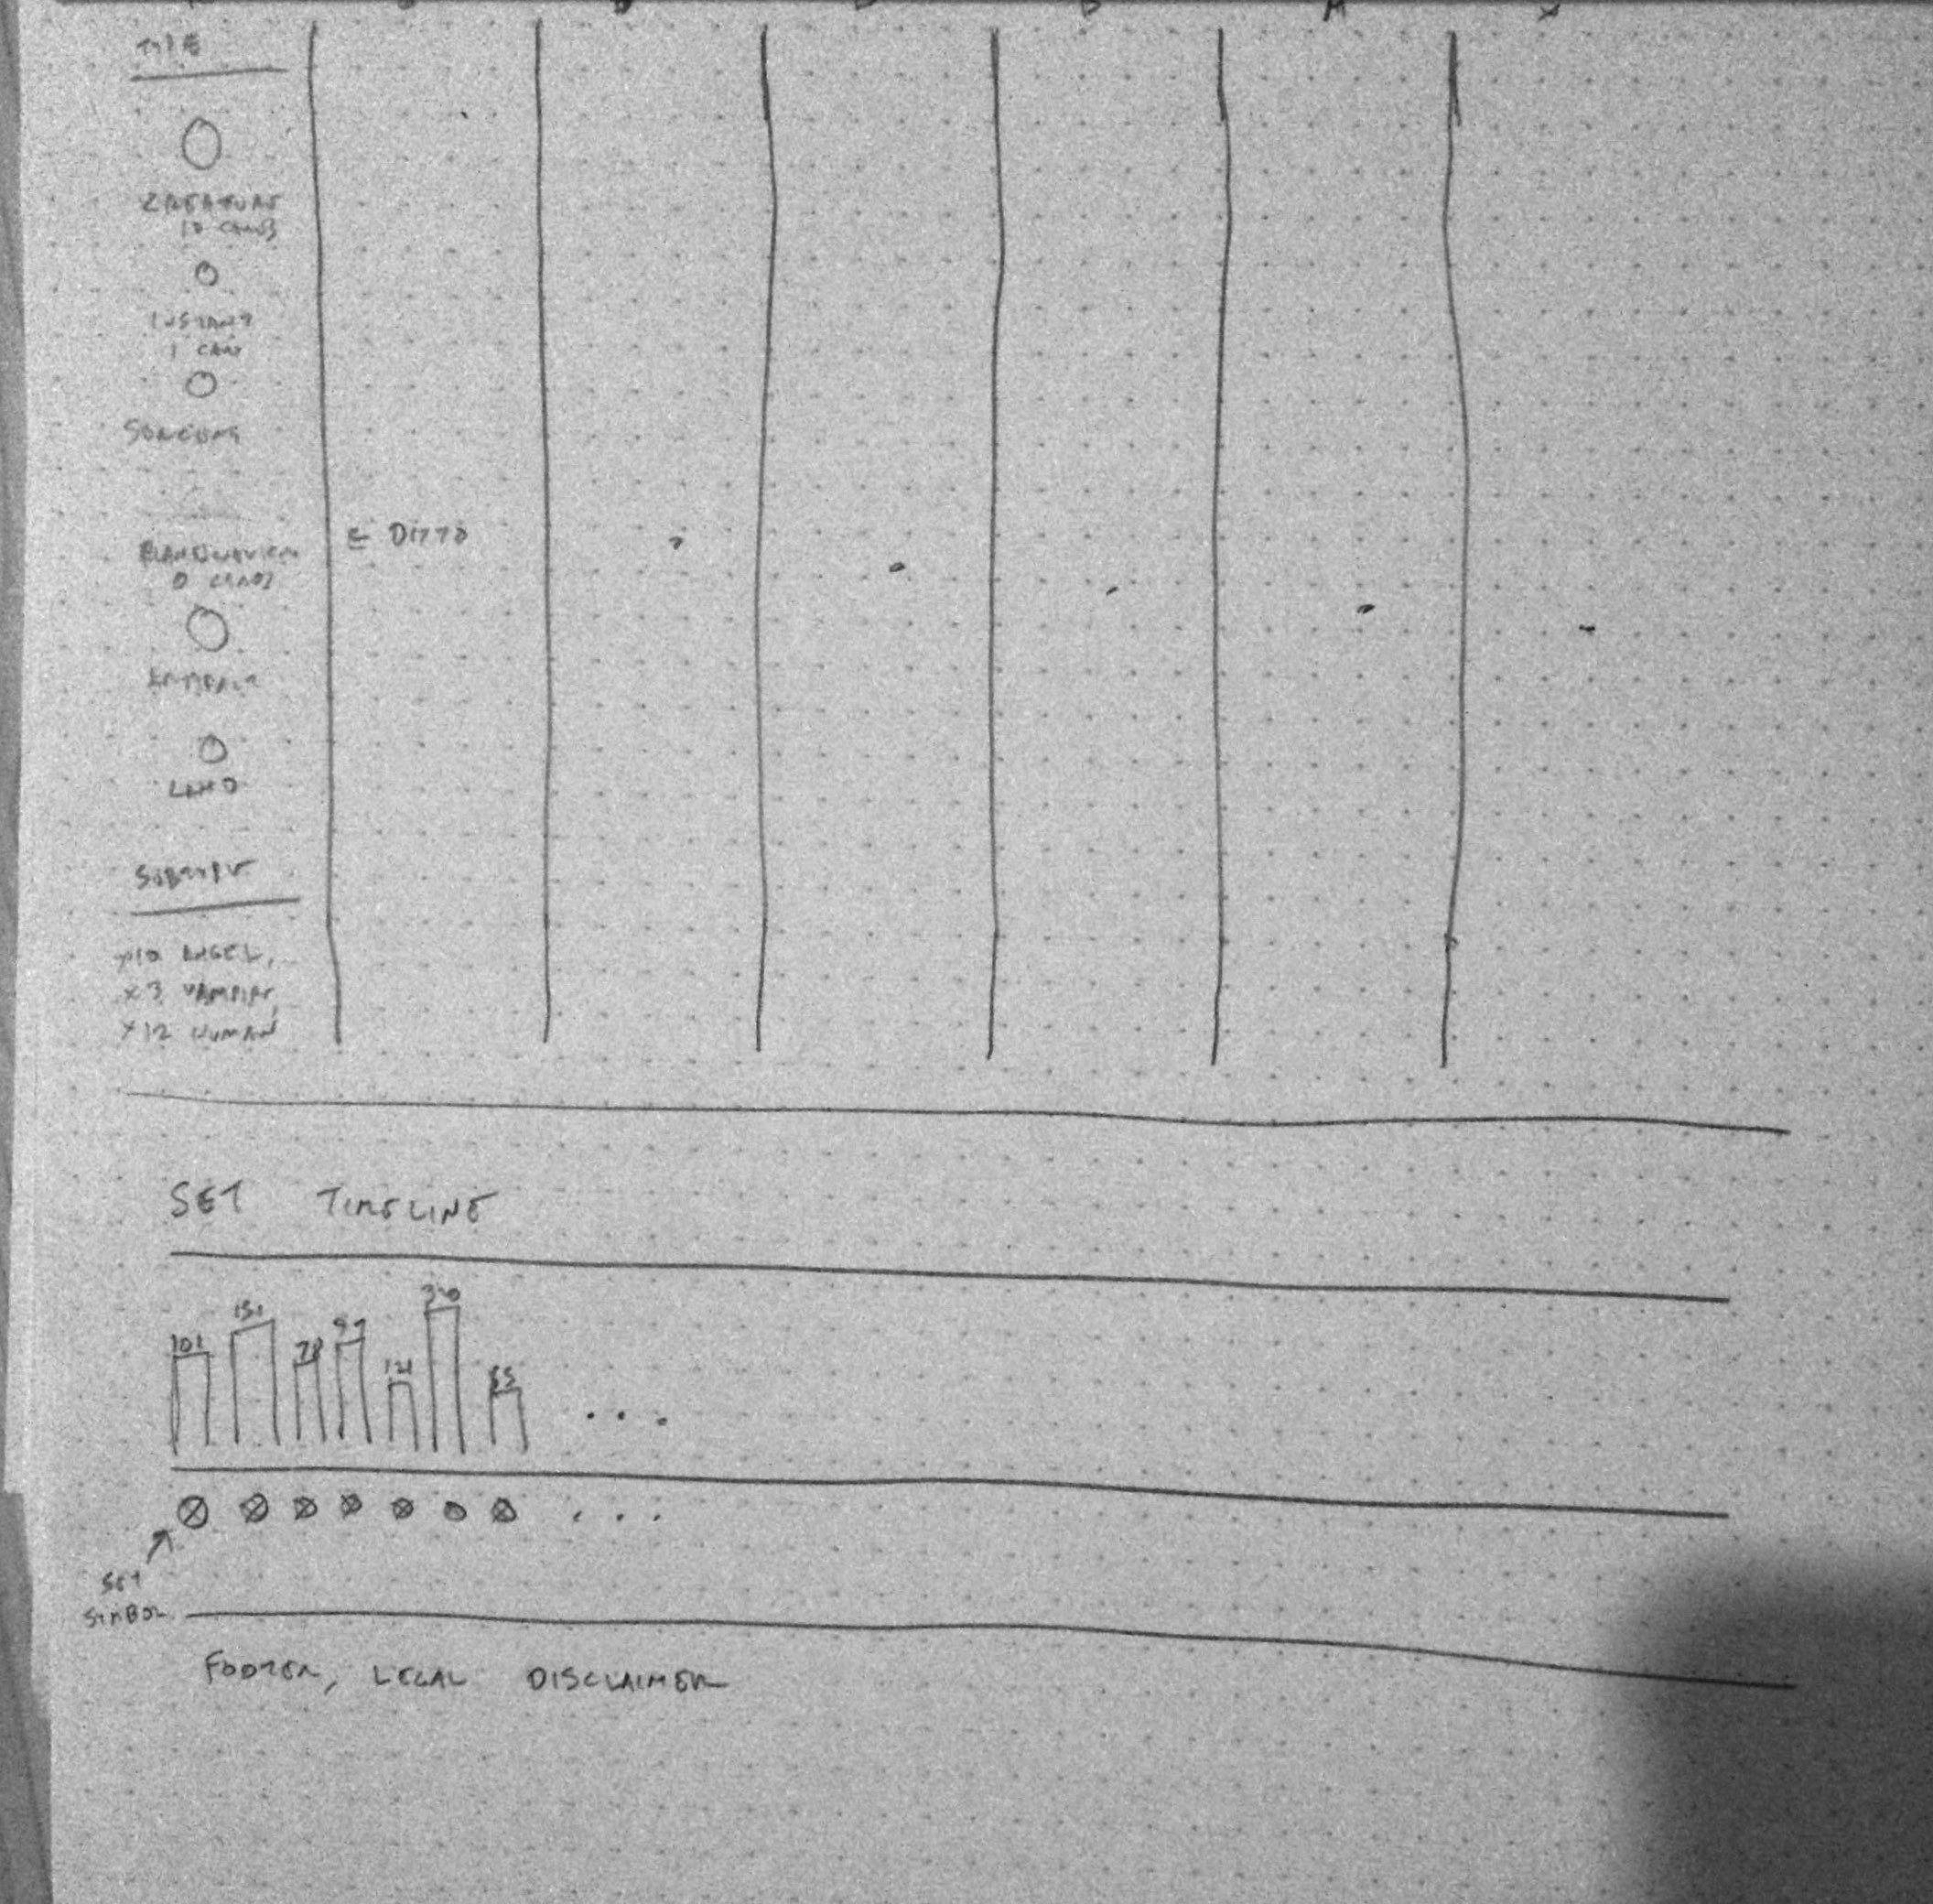 TYPE
CREATURE
10 CARDS
INSTANT
1 CARD
SORCERY
← DITTO
PLANESWALKER
0 CARDS
ARTIFACT
LAND
SUBTYPE
x10 ANGEL,
x3 VAMPIRE,
x12 HUMAN
SET TIMELINE
101
151
78
121
55
SET
SYMBOL
FOOTER, LEGAL DISCLAIMER